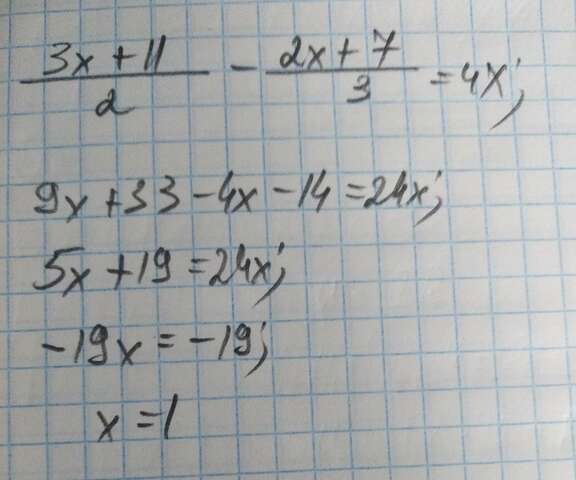 (3x + 11)/2 - (2x + 7)/3 = 4x;
9x + 33 - 4x - 14 = 24x;
5x + 19 = 24x;
-19x = -19;
x = 1